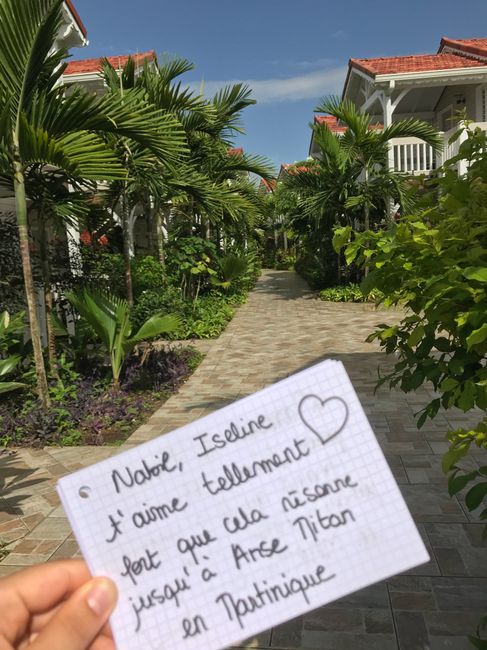 Nabil, Iseline
t'aime tellement
fort que cela résonne
jusqu'à Anse Mitan
en Martinique